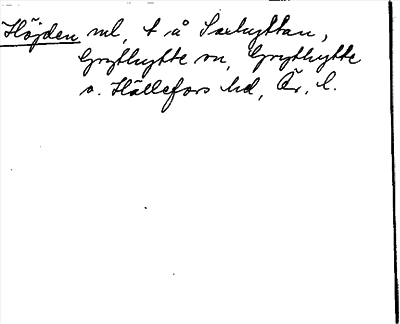 Höjden ml, t å Saxhyttan,
Grythytte sn, Grythytte
o. Hällefors hd, Ör. l.